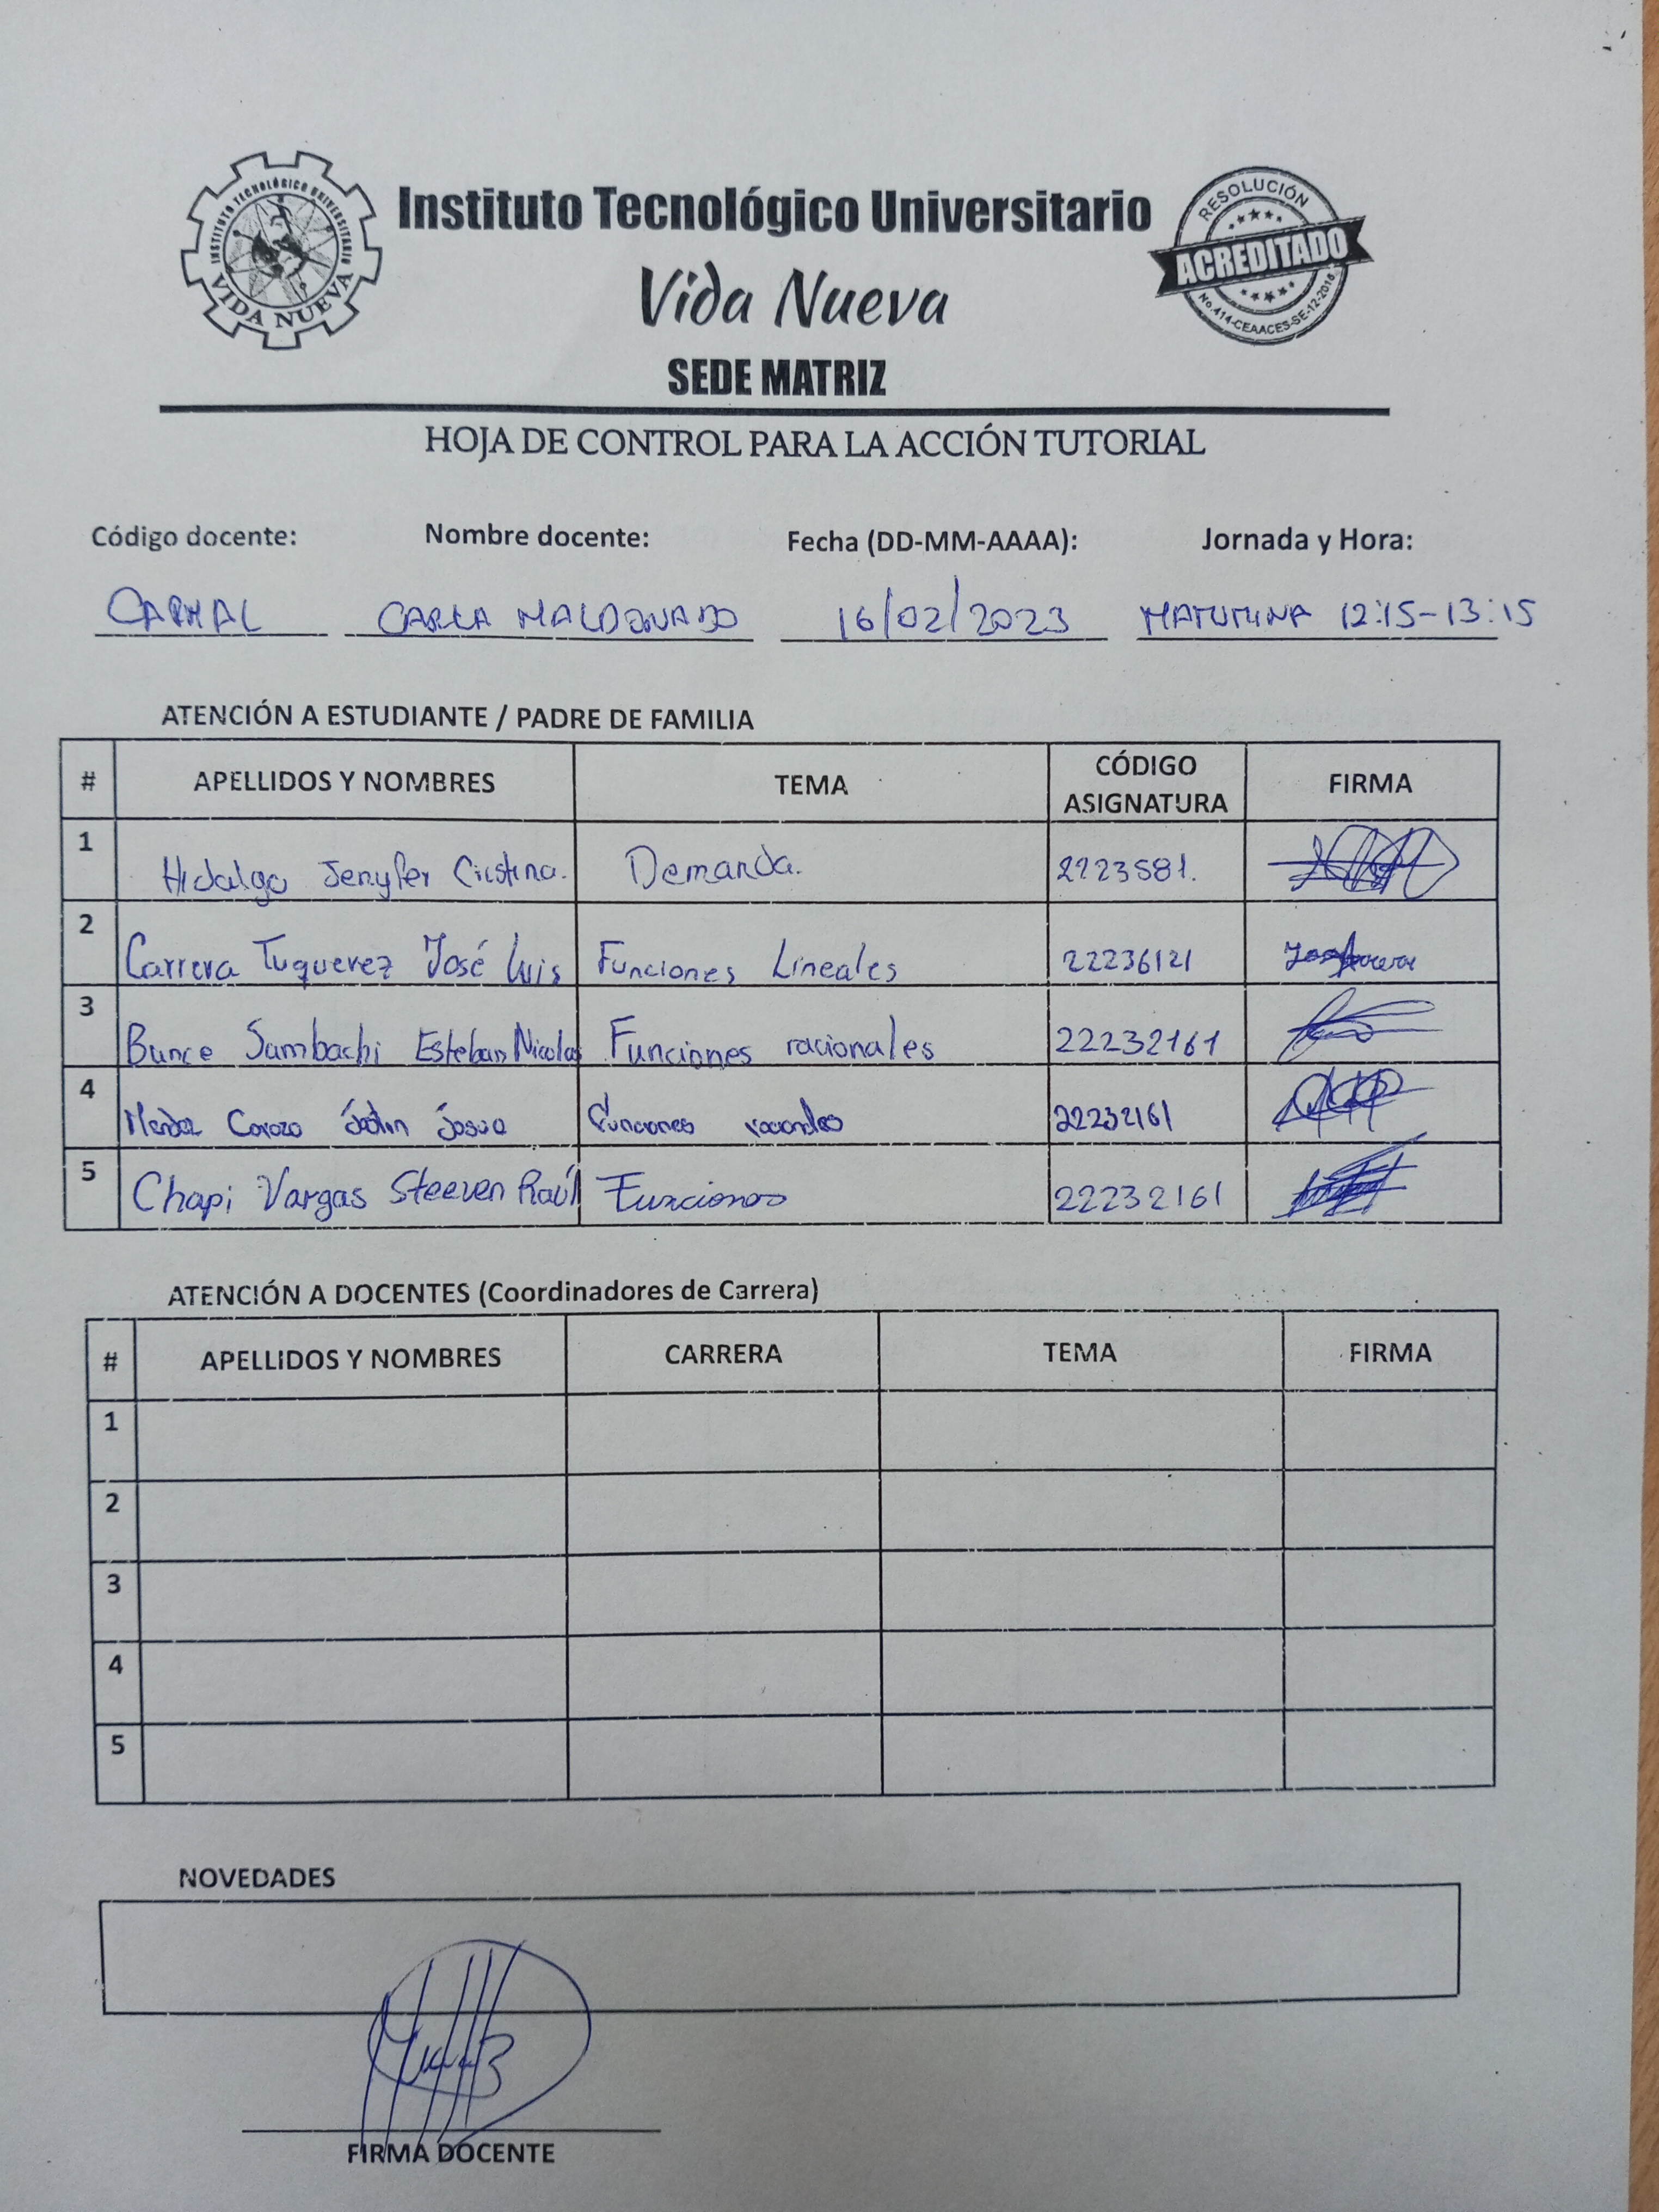 INSTITUTO TECNOLÓGICO UNIVERSITARIO
VIDA NUEVA
Instituto Tecnológico Universitario
Vida Nueva
SEDE MATRIZ
RESOLUCIÓN
ACREDITADO
No.414-CEAACES-SE-12-2016
HOJA DE CONTROL PARA LA ACCIÓN TUTORIAL
Código docente: Nombre docente: Fecha (DD-MM-AAAA): Jornada y Hora:
CARMAL CARLA MALDONADO 16/02/2023 MATUTINA 12:15-13:15
ATENCIÓN A ESTUDIANTE / PADRE DE FAMILIA
# APELLIDOS Y NOMBRES TEMA CÓDIGO ASIGNATURA FIRMA
1 Hidalgo Jenyfer Cristina. Demanda. 2223581.
2 Carrera Tuquerez José Luis Funciones Lineales 22236121
3 Bunce Sambachi Esteban Nicolas Funciones racionales 22232161
4 Josue Funciones racionales 22232161
5 Chapi Vargas Steeven Raúl Funciones 22232161
ATENCIÓN A DOCENTES (Coordinadores de Carrera)
# APELLIDOS Y NOMBRES CARRERA TEMA FIRMA
1
2
3
4
5
NOVEDADES
FIRMA DOCENTE